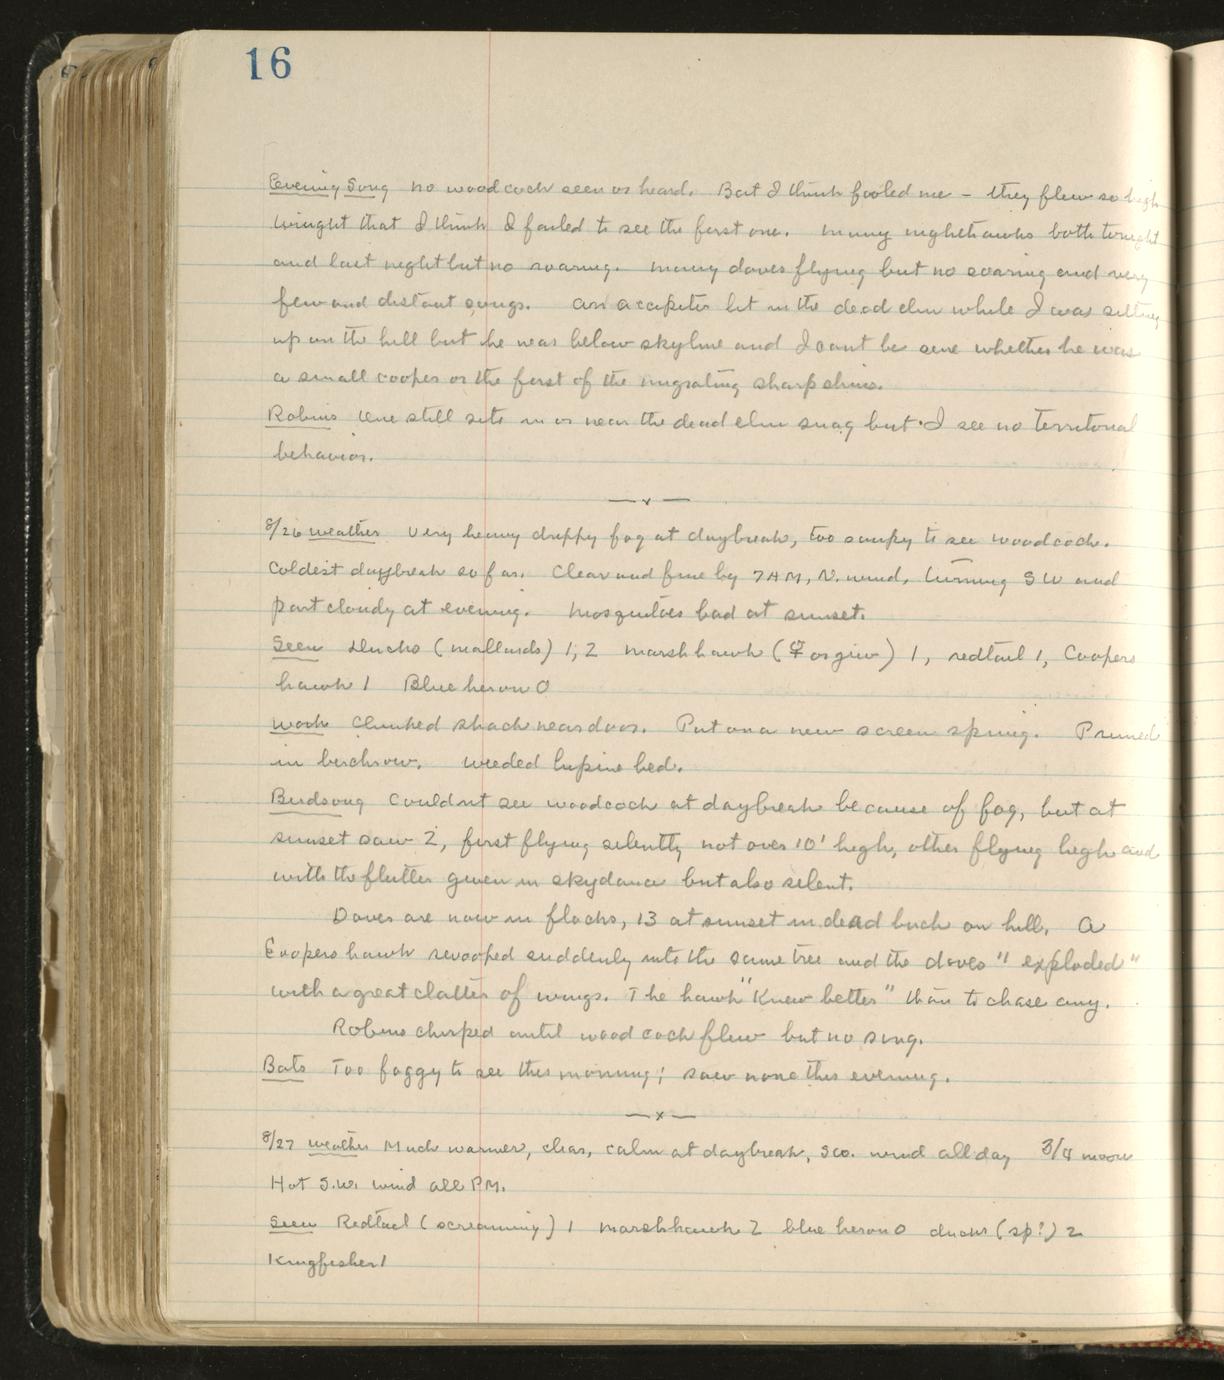 16
Evening Song no woodcock seen or heard. But I think fooled me – they flew so high
tonight that I think I failed to see the first one. Many nighthawks both tonight
and last night but no roaring. Many doves flying but no soaring and very
few and distant songs. An accipiter lit in the dead elm while I was sitting
up on the hill but he was below skyline and I cant be sure whether he was
a small cooper or the first of the migrating sharpshins.
Robins One still sits in or near the dead elm snag but I see no territorial
behavior.
— x —
8/26 weather Very heavy drippy fog at daybreak, too soupy to see woodcock.
Coldest daybreak so far. Clear and fine by 7 AM, N. wind, turning SW and
part cloudy at evening. Mosquitoes bad at sunset.
Seen Ducks (mallards) 1, 2 Marsh hawk (♀ or juv) 1, redtail 1, Coopers
hawk 1 Blue heron 0
Work Climbed shack near door. Put on a new screen spring. Pruned
in birch row. Weeded lupine bed.
Birdsong Couldnt see woodcock at daybreak because of fog, but at
sunset saw 2, first flying silently not over 10' high, other flying high and
with the flutter given in skydance but also silent.
Doves are now in flocks, 13 at sunset in dead birch on hill. A
Coopers hawk swooped suddenly into the same tree and the doves "exploded"
with a great clatter of wings. The hawk "knew better" than to chase any.
Robins chirped until woodcock flew but no song.
Bats Too foggy to see this morning; saw none this evening.
— x —
8/27 weather Much warmer, clear, calm at daybreak, SW. wind all day 3/4 moon
Hot S.W. wind all PM.
Seen Redtail (screaming) 1 Marsh hawk 2 blue heron 0 ducks (sp?) 2
Kingfisher 1